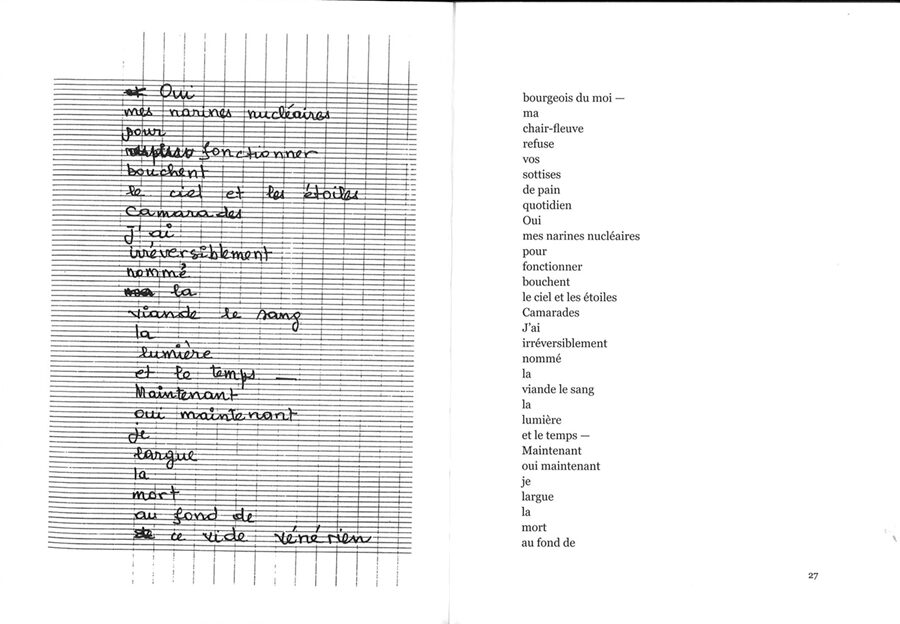 Oui
mes narines nucléaires
pour
fonctionner
bouchent
le ciel et les étoiles
Camarades
J'ai
irréversiblement
nommé
la
viande le sang
la
lumière
et le temps —
Maintenant
oui maintenant
je
largue
la
mort
au fond de
ce vide vénérien
bourgeois du moi —
ma
chair-fleuve
refuse
vos
sottises
de pain
quotidien
Oui
mes narines nucléaires
pour
fonctionner
bouchent
le ciel et les étoiles
Camarades
J'ai
irréversiblement
nommé
la
viande le sang
la
lumière
et le temps —
Maintenant
oui maintenant
je
largue
la
mort
au fond de
27